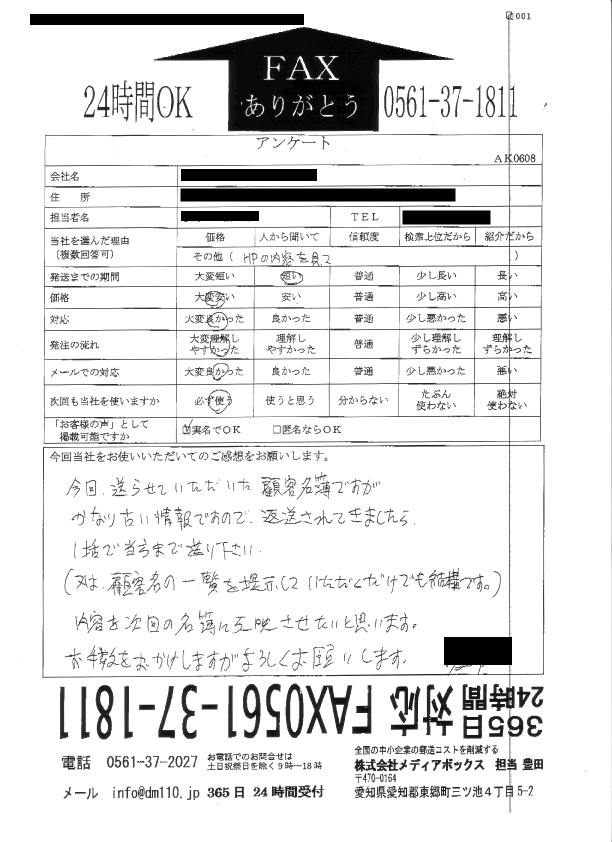 001
FAX
ありがとう
24時間OK
0561-37-1811
アンケート
AK0608
会社名
住 所
担当者名 TEL
当社を選んだ理由
(複数回答可)
価格 人から聞いて 信頼度 検索上位だから 紹介だから
その他( HPの内容を見て )
発送までの期間 大変短い 短い 普通 少し長い 長い
価格 大変安い 安い 普通 少し高い 高い
対応 大変良かった 良かった 普通 少し悪かった 悪い
発注の流れ 大変理解しやすかった 理解しやすかった 普通 少し理解しずらかった 理解しずらかった
メールでの対応 大変良かった 良かった 普通 少し悪かった 悪い
次回も当社を使いますか 必ず使う 使うと思う 分からない たぶん使わない 絶対使わない
「お客様の声」として
掲載可能ですか
☑実名でOK □匿名ならOK
今回当社をお使いいただいてのご感想をお願いします。
今回、送らせていただいた顧客名簿ですが
かなり古い情報ですので、返送されてきましたら、
1括で当方まで送り下さい。
(又は、顧客名の一覧を提示していただくだけでも結構です。)
内容を次回の名簿に反映させたいと思います。
お手数をおかけしますがよろしくお願いします。
365日
24時間 対応 FAX0561-37-1811
電話 0561-37-2027 お電話でのお問合せは
土日祝祭日を除く9時〜18時
メール info@dm110.jp 365日 24時間受付
全国の中小企業の郵送コストを削減する
株式会社メディアボックス 担当 豊田
〒470-0164
愛知県愛知郡東郷町三ツ池4丁目5-2